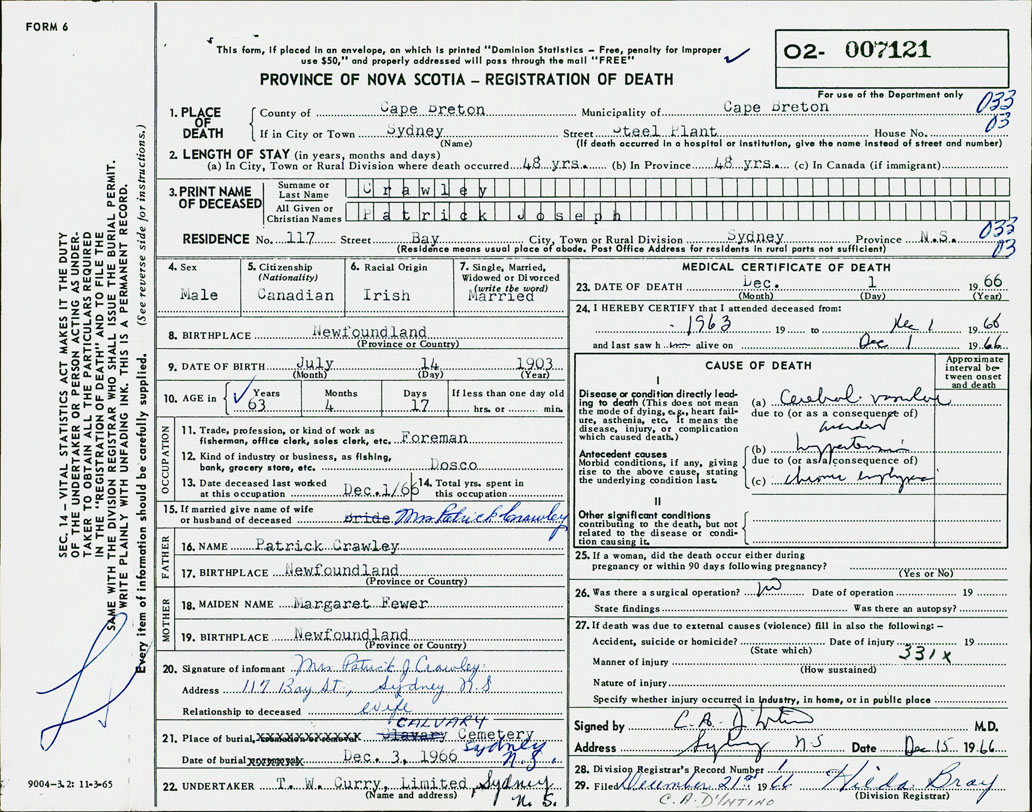 FORM 6
This form, if placed in an envelope, on which is printed "Dominion Statistics – Free, penalty for improper
use $50," and properly addressed will pass through the mail "FREE"
02- 007121
PROVINCE OF NOVA SCOTIA – REGISTRATION OF DEATH
For use of the Department only
033
03
1. PLACE OF DEATH
County of Cape Breton Municipality of Cape Breton
If in City or Town Sydney Street Steel Plant House No.
(Name) (If death occurred in a hospital or institution, give the name instead of street and number)
2. LENGTH OF STAY (in years, months and days)
(a) In City, Town or Rural Division where death occurred 48 yrs. (b) In Province 48 yrs. (c) In Canada (if immigrant)
3. PRINT NAME OF DECEASED
Surname or Last Name Crawley
All Given or Christian Names Patrick Joseph
RESIDENCE No. 117 Street Bay City, Town or Rural Division Sydney Province N.S.
(Residence means usual place of abode. Post Office Address for residents in rural parts not sufficient)
033
03
4. Sex
Male
5. Citizenship
(Nationality)
Canadian
6. Racial Origin
Irish
7. Single, Married,
Widowed or Divorced
(write the word)
Married
8. BIRTHPLACE Newfoundland
(Province or Country)
9. DATE OF BIRTH July 14 1903
(Month) (Day) (Year)
10. AGE in
Years Months Days If less than one day old
63 4 17 hrs. or min.
OCCUPATION
11. Trade, profession, or kind of work as
fisherman, office clerk, sales clerk, etc. Foreman
12. Kind of industry or business, as fishing,
bank, grocery store, etc. Dosco
13. Date deceased last worked
at this occupation Dec.1/66
14. Total yrs. spent in
this occupation
15. If married give name of wife
or husband of deceased Bride Mrs Patrick Crawley
FATHER
16. NAME Patrick Crawley
17. BIRTHPLACE Newfoundland
(Province or Country)
MOTHER
18. MAIDEN NAME Margaret Fewer
19. BIRTHPLACE Newfoundland
(Province or Country)
20. Signature of informant Mrs Patrick J Crawley
Address 117 Bay St., Sydney N.S
Relationship to deceased wife
CALVARY
21. Place of burial Clavary Cemetery
Date of burial Dec. 3, 1966 Sydney
N.S.
22. UNDERTAKER T. W. Curry, Limited, Sydney
(Name and address) N. S.
MEDICAL CERTIFICATE OF DEATH
23. DATE OF DEATH Dec. 1 1966
(Month) (Day) (Year)
24. I HEREBY CERTIFY that I attended deceased from:
1963 19 to Dec 1 1966
and last saw h im alive on Dec 1 1966
CAUSE OF DEATH
Approximate
interval be-
tween onset
and death
I
Disease or condition directly lead-
ing to death (This does not mean
the mode of dying, e.g., heart fail-
ure, asthenia, etc. It means the
disease, injury, or complication
which caused death.)
(a) Cerebral vascular
due to (or as a consequence of)
accident
Antecedent causes
Morbid conditions, if any, giving
rise to the above cause, stating
the underlying condition last.
(b) hypertension
due to (or as a consequence of)
(c) chronic emphysema
II
Other significant conditions
contributing to the death, but not
related to the disease or condi-
tion causing it.
25. If a woman, did the death occur either during
pregnancy or within 90 days following pregnancy?
(Yes or No)
26. Was there a surgical operation? no Date of operation 19
State findings Was there an autopsy?
27. If death was due to external causes (violence) fill in also the following: –
Accident, suicide or homicide? Date of injury 19
(State which) 331X
Manner of injury
(How sustained)
Nature of injury
Specify whether injury occurred in industry, in home, or in public place
Signed by C. A. D'Intino M.D.
Address Sydney NS Date Dec 15 1966
28. Division Registrar's Record Number 1
29. Filed December 21st 1966 Hilda Bray
(Division Registrar)
C.A. D'INTINO
SEC. 14 – VITAL STATISTICS ACT MAKES IT THE DUTY
OF THE UNDERTAKER OR PERSON ACTING AS UNDER-
TAKER TO OBTAIN ALL THE PARTICULARS REQUIRED
IN THE "REGISTRATION OF DEATH" AND TO FILE THE
SAME WITH THE DIVISION REGISTRAR WHO SHALL ISSUE THE BURIAL PERMIT.
WRITE PLAINLY WITH UNFADING INK. THIS IS A PERMANENT RECORD.
Every item of information should be carefully supplied. (See reverse side for instructions.)
9004-3.2: 11-3-65